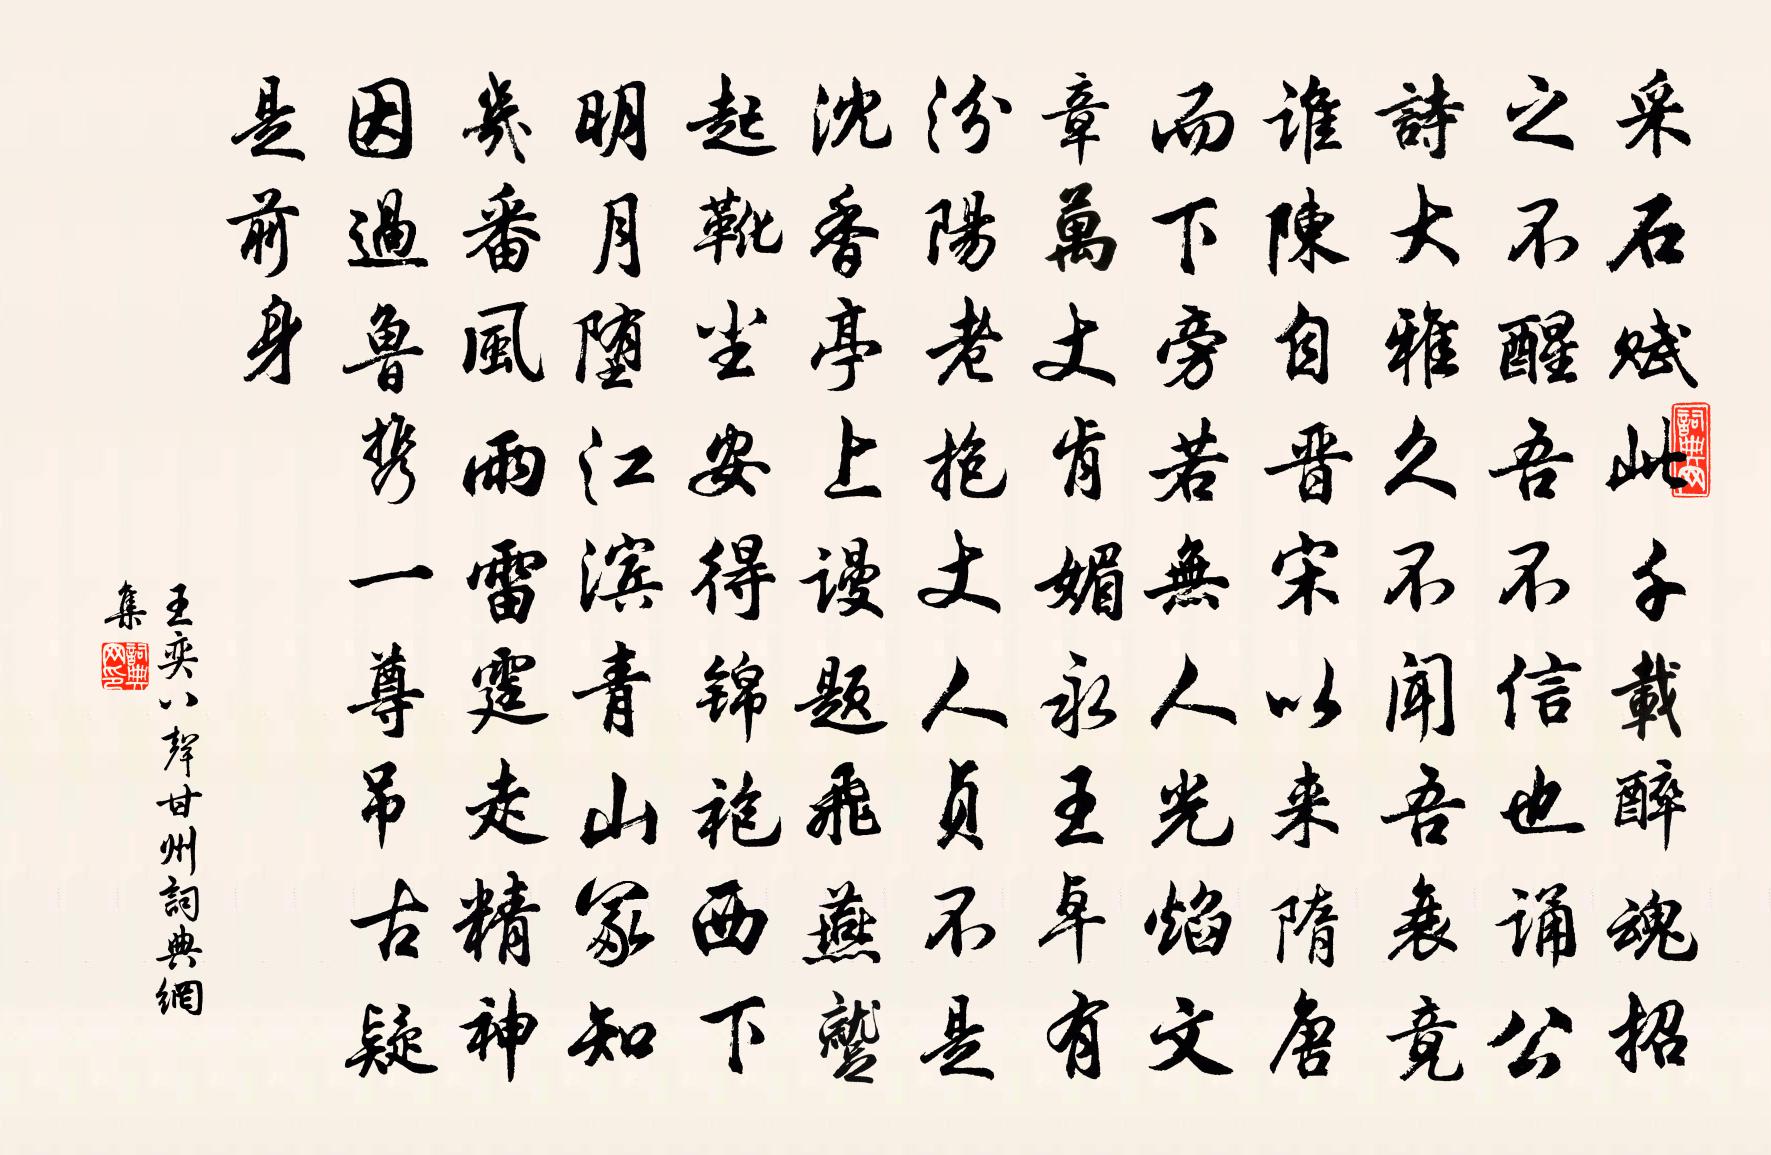 采石賦此千載醉魂招
之不醒吾不信也诵公
詩大雅久不闻吾衰竟
谁陳自晋宋以来隋唐
而下旁若無人光焰文
章萬丈肯媚永王卓有
汾陽老抱丈人貞不是
沈香亭上谩题飛燕蹔
起靴尘安得锦袍西下
明月堕江滨青山冢知
幾番風雨雷霆走精神
因過魯携一尊吊古疑
是前身
王奕八聲甘州詞典網
集
詞典网
詞典网印